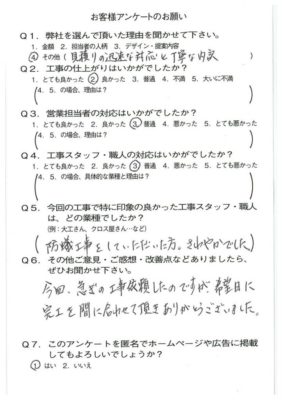 お客様アンケートのお願い
Q1. 弊社を選んで頂いた理由を聞かせて下さい。
1. 金額 2. 担当者の人柄 3. デザイン・提案内容
④ その他(見積りの迅速な対応と丁寧な内訳)
Q2. 工事の仕上がりはいかがでしたか?
1. とても良かった ② 良かった 3. 普通 4. 不満 5. 大いに不満
(4. 5. の場合、理由は? )
Q3. 営業担当者の対応はいかがでしたか?
1. とても良かった 2. 良かった ③ 普通 4. 悪かった 5. とても悪かった
(4. 5. の場合、理由は? )
Q4. 工事スタッフ・職人の対応はいかがでしたか?
1. とても良かった 2. 良かった ③ 普通 4. 悪かった 5. とても悪かった
(4. 5. の場合、具体的な業種と理由は? )
Q5. 今回の工事で特に印象の良かった工事スタッフ・職人
は、どの業種でしたか?
(例:大工さん、クロス屋さん…など)
(防蟻工事をしていただいた方。さわやかでした。)
Q6. その他ご意見・ご感想・改善点などありましたら、
ぜひお聞かせ下さい。
今回、急ぎの工事依頼したのですが、希望日に
完工を間に合わせて頂きありがとうございました。
Q7. このアンケートを匿名でホームページや広告に掲載
してもよろしいでしょうか?
① はい 2. いいえ